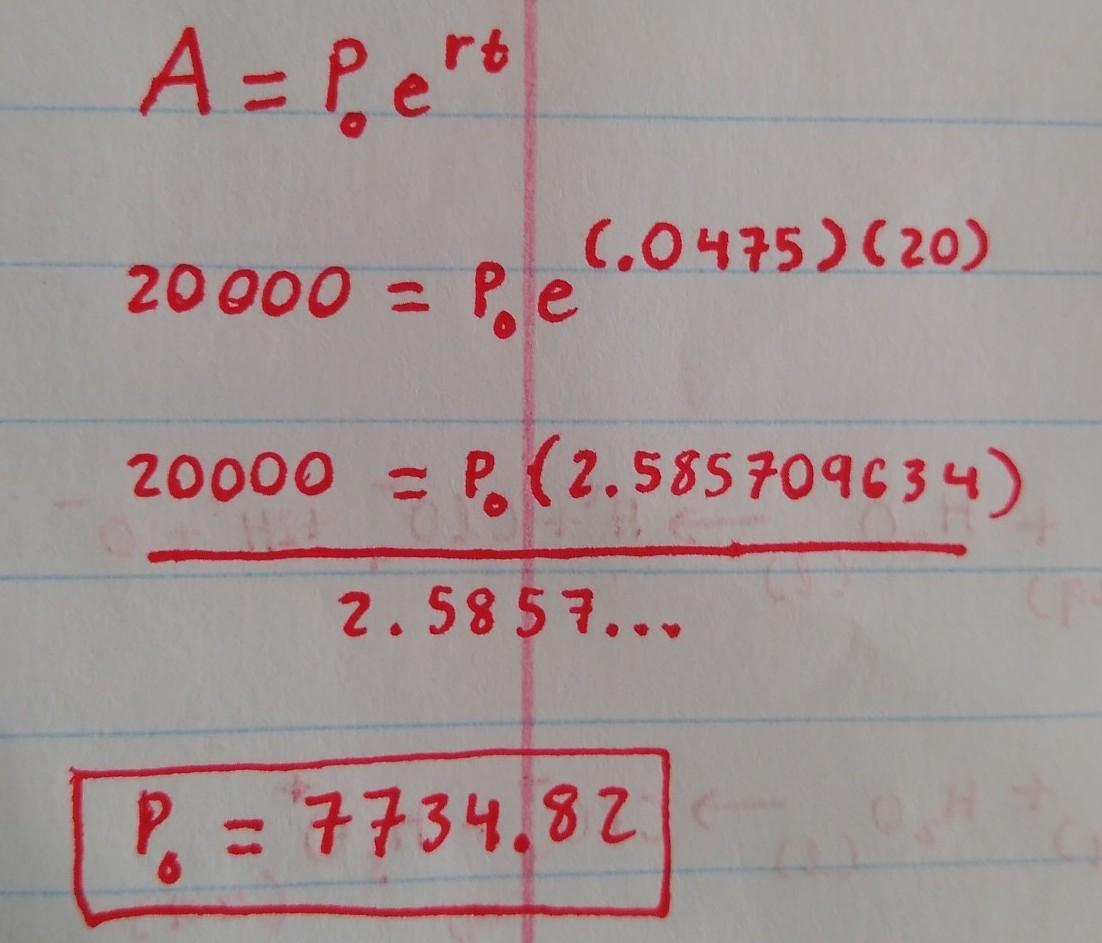 A = P₀ e^rt
20000 = P₀ e^(.0475)(20)
20000 = P₀ (2.585709634)
2.5857...
P₀ = 7734.82